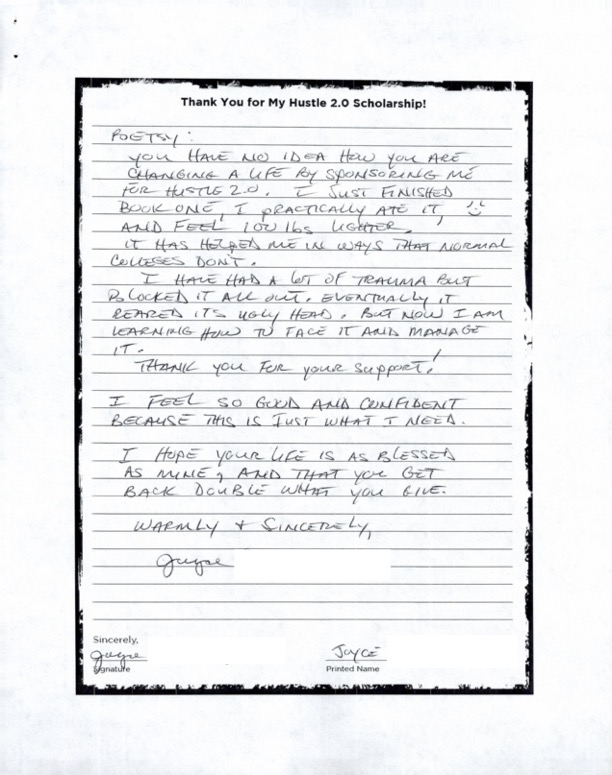 Thank You for My Hustle 2.0 Scholarship!
POETSY:
YOU HAVE NO IDEA HOW YOU ARE
CHANGING A LIFE BY SPONSORING ME
FOR HUSTLE 2.0. I JUST FINISHED
BOOK ONE, I PRACTICALLY ATE IT,
AND FEEL 100 lbs LIGHTER.
IT HAS HELPED ME IN WAYS THAT NORMAL
COLLEGES DON'T.
I HAVE HAD A LOT OF TRAUMA BUT
BLOCKED IT ALL OUT. EVENTUALLY IT
REARED IT'S UGLY HEAD. BUT NOW I AM
LEARNING HOW TO FACE IT AND MANAGE
IT.
THANK YOU FOR YOUR SUPPORT!
I FEEL SO GOOD AND CONFIDENT
BECAUSE THIS IS JUST WHAT I NEED.
I HOPE YOUR LIFE IS AS BLESSED
AS MINE, AND THAT YOU GET
BACK DOUBLE WHAT YOU GIVE.
WARMLY + SINCERELY,
Joyce
Sincerely,
Joyce JOYCE
Signature Printed Name